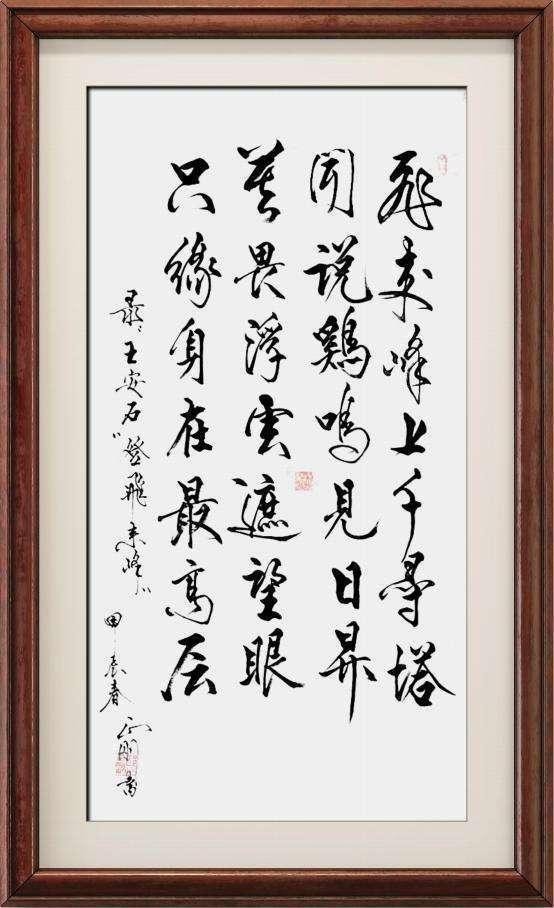 飛来峰上千尋塔
闻説鷄鳴見日昇
莫畏浮雲遮望眼
只緣身在最高层
录王安石"登飛来峰"
甲辰春 書